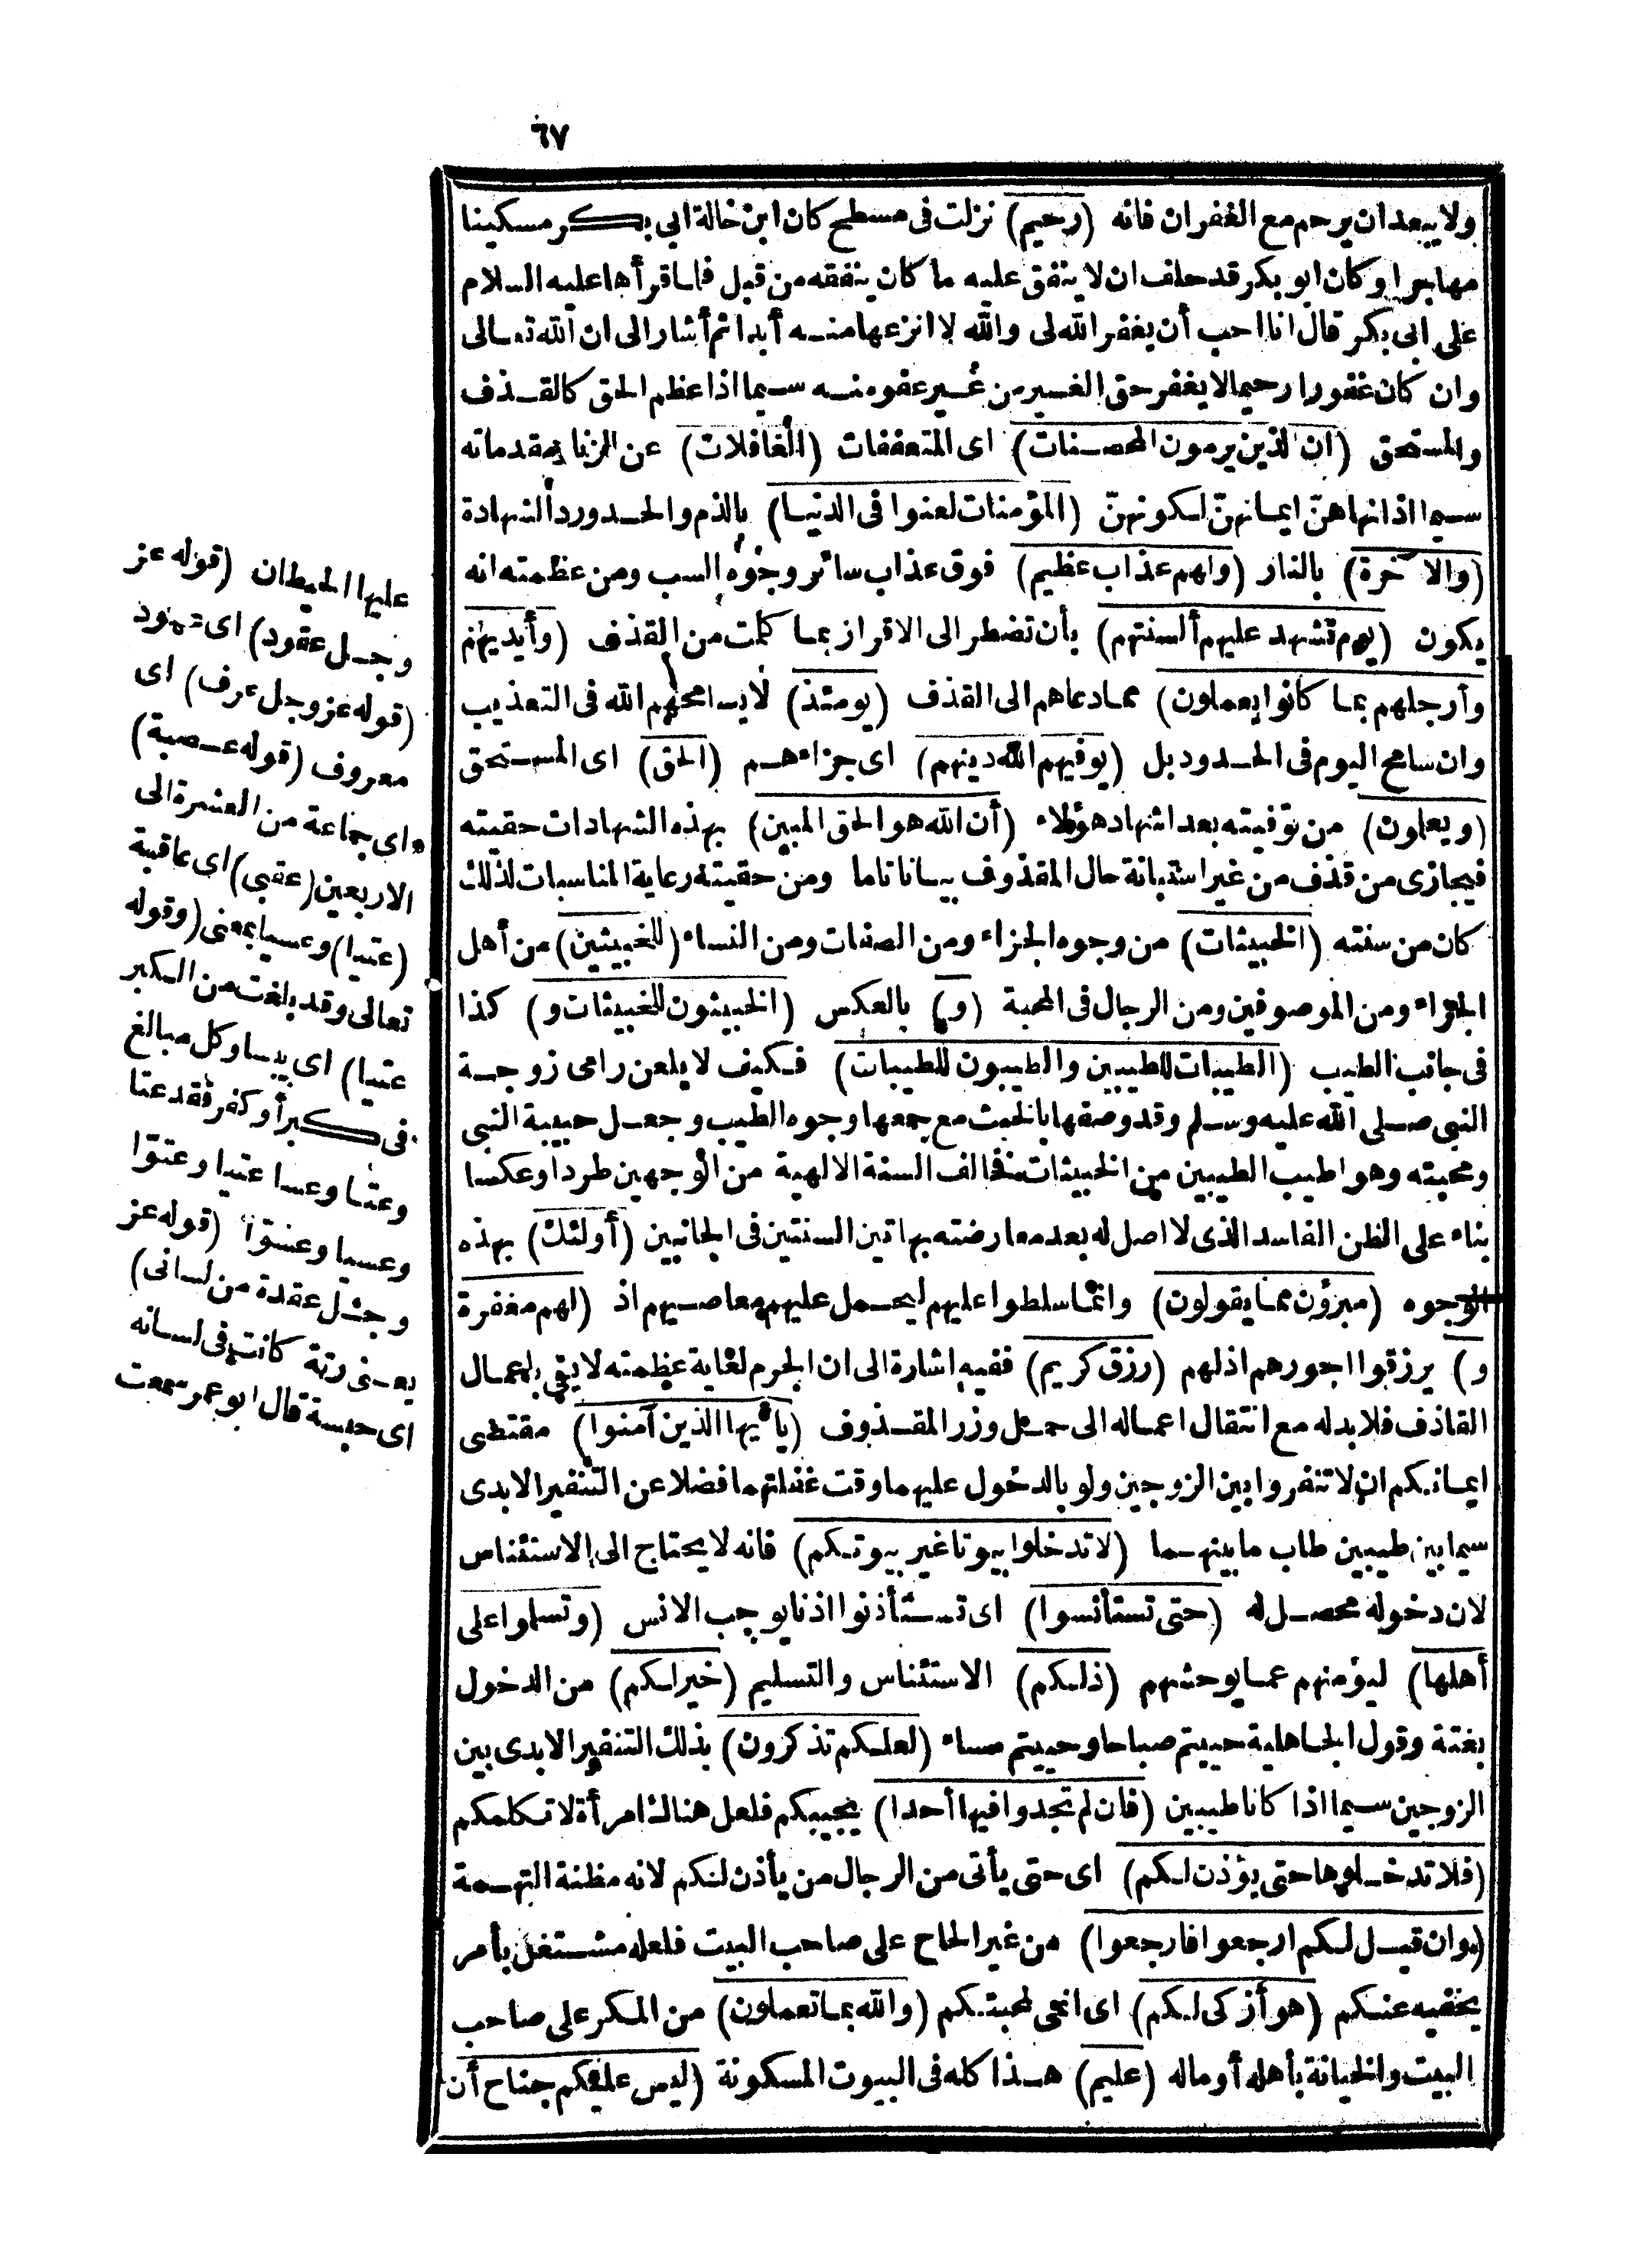 ٦٧
ولا يبعد ان يرحم مع الغفران فانه (رحيم) نزلت فى مسطح كان ابن خالة ابي بكر مسكينا
مهاجرا وكان ابو بكر قد حلف ان لا ينفق عليه ما كان ينفقه من قبل فلما قرأها عليه السلام
على ابى بكر قال انا احب أن يغفر الله لى والله لا انزعها منه أبدا ثم أشار الى ان الله تعالى
وان كان غفورا رحيما لا يغفر حق الغير من غير عفو منه سيما اذا عظم الحق كالقذف
والمستحق (ان الذين يرمون المحصنات) اى المتعففات (الغافلات) عن الزنا بمقدماته
سيما اذا نهاهنّ ايمانهنّ لكونهنّ (المؤمنات لعنوا فى الدنيا) بالذم والحد ورد الشهادة
(والآخرة) بالنار (ولهم عذاب عظيم) فوق عذاب سائر وجوه السب ومن عظمته انه
يكون (يوم تشهد عليهم ألسنتهم) بأن تضطر الى الاقرار بما كلت من القذف (وأيديهم
وأرجلهم بما كانوا يعملون) مما دعاهم الى القذف (يومئذ) لا يسامحهم الله فى التعذيب
وان سامح اليوم فى الحدود بل (يوفيهم الله دينهم) اى جزاءهم (الحق) اى المستحق
(ويعلمون) من توفيته بعد اشهاد هؤلاء (أن الله هو الحق المبين) بهذه الشهادات حقيته
فيجازى من قذف من غير استبانة حال المقذوف بيانا تاما ومن حقيته رعاية المناسبات لذلك
كان من سنته (الخبيثات) من وجوه الجزاء ومن الصفات ومن النساء (للخبيثين) من أهل
الجزاء ومن الموصوفين ومن الرجال فى المحبة (و) بالعكس (الخبيثون للخبيثات و) كذا
فى جانب الطيب (الطيبات للطيبين والطيبون للطيبات) فكيف لا يلعن رامى زوجة
النبى صلى الله عليه وسلم وقد وصفها بالخبث مع جمعها وجوه الطيب وجعل حبيبة النبى
ومحبته وهو اطيب الطيبين من الخبيثات فخالف السنة الالهية من الوجهين طردا وعكسا
بناء على الظن الفاسد الذى لا اصل له بعد معارضته بهاتين السنتين فى الجانبين (أولئك) بهذه
الوجوه (مبرؤن مما يقولون) وانما سلطوا عليهم ليحمل عليهم معاصيهم اذ (لهم مغفرة
و) يرزقوا اجورهم اذ لهم (رزق كريم) ففيه اشارة الى ان الجرم لغاية عظمته لا يفى باعمال
القاذف فلا بد له مع انتقال اعماله الى حمل وزر المقذوف (يا أيها الذين آمنوا) مقتضى
ايمانكم ان لا تنفروا بين الزوجين ولو بالدخول عليهما وقت غفلتهما فضلا عن التنفير الابدى
سيما بين طيبين طاب ما بينهما (لا تدخلوا بيوتا غير بيوتكم) فانه لا يحتاج الى الاستئناس
لان دخوله محصل له (حتى تستأنسوا) اى تستأذنوا اذنا يوجب الانس (وتسلموا على
أهلها) ليؤمنهم عما يوحشهم (ذلكم) الاستئناس والتسليم (خير لكم) من الدخول
بغتة وقول الجاهلية حييتم صباحا وحييتم مساء (لعلكم تذكرون) بذلك التنفير الابدى بين
الزوجين سيما اذا كانا طيبين (فان لم تجدوا فيها أحدا) يجيبكم فلعل هناك امرأة لا تكلمكم
(فلا تدخلوها حتى يؤذن لكم) اى حتى يأتى من الرجال من يأذن لكم لانه مظنة التهمة
(وان قيل لكم ارجعوا فارجعوا) من غير الحاح على صاحب البيت فلعله مشتغل بأمر
يخفيه عنكم (هو أزكى لكم) اى انمى لمحبتكم (والله بما تعملون) من المكر على صاحب
البيت والخيانة بأهله أو ماله (عليم) هذا كله فى البيوت المسكونة (ليس عليكم جناح أن
عليها الحيطان (قوله عز
وجل عقود) اى عهود
(قوله عز وجل عرف) اى
معروف (قوله عصبة)
اى جماعة من العشرة الى
الاربعين (عقبى) اى عاقبة
(عتيا) وعسيا بمعنى (وقوله
تعالى وقد بلغت من الكبر
عتيا) اى يبسا وكل مبالغ
فى كبر أو كفر فقد عتا
وعثا وعسا عتيا وعتوّا
وعسيا وعسوّا (قوله عز
وجل عقدة من لسانى)
يعنى رتة كانت فى لسانه
اى حبسة قال ابو عمر سمعت